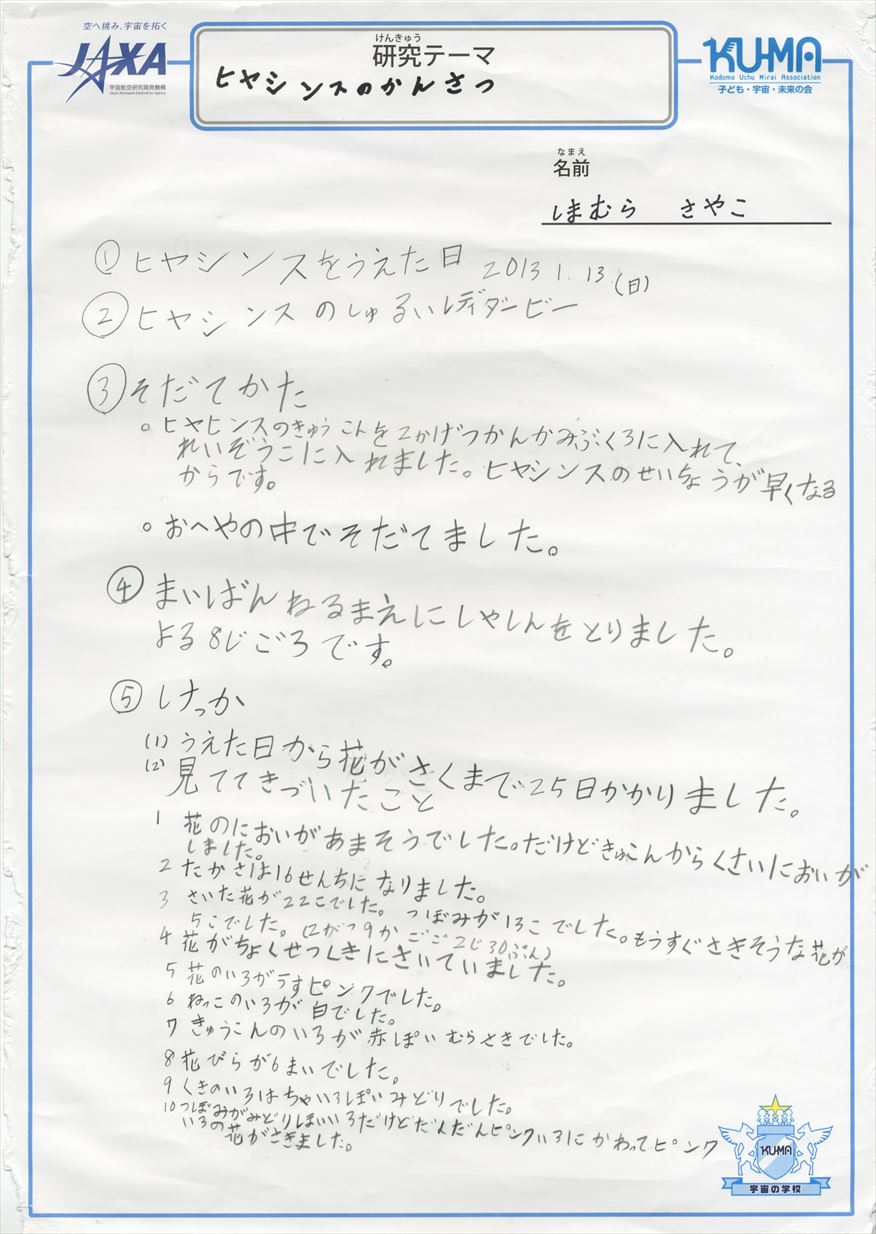 空へ挑み、宇宙を拓く
JAXA
宇宙航空研究開発機構
Japan Aerospace Exploration Agency
けんきゅう
研究テーマ
ヒヤシンスのかんさつ
KU-MA
Kodomo Uchu Mirai Association
子ども・宇宙・未来の会
なまえ
名前
しまむら さやこ
① ヒヤシンスをうえた日 2013 1. 13 (日)
② ヒヤシンスのしゅるいレディダービー
③ そだてかた
○ ヒヤヒンスのきゅうこんを2かげつかんかみぶくろに入れて、
れいぞうこに入れました。ヒヤシンスのせいちょうが早くなる
からです。
○ おへやの中でそだてました。
④ まいばんねるまえにしゃしんをとりました。
よる8じごろです。
⑤ けっか
(1) うえた日から花がさくまで25日かかりました。
(2) 見ててきづいたこと
1 花のにおいがあまそうでした。だけどきゅこんからくさいにおいが
しました。
2 たかさは16せんちになりました。
3 さいた花が22こでした。つぼみが13こでした。もうすぐさきそうな花が
5こでした。(2がつ9かごご2じ30ぷん)
4 花がちょくせつくきにさいていました。
5 花のいろがうすピンクでした。
6 ねっこのいろが白でした。
7 きゅうこんのいろが赤ぽいむらさきでした。
8 花びらが6まいでした。
9 くきのいろはちゃいろぽいみどりでした。
10 つぼみがみどりぽいいろだけどだんだんピンクいろにかわってピンク
いろの花がさきました。
KU-MA
宇宙の学校